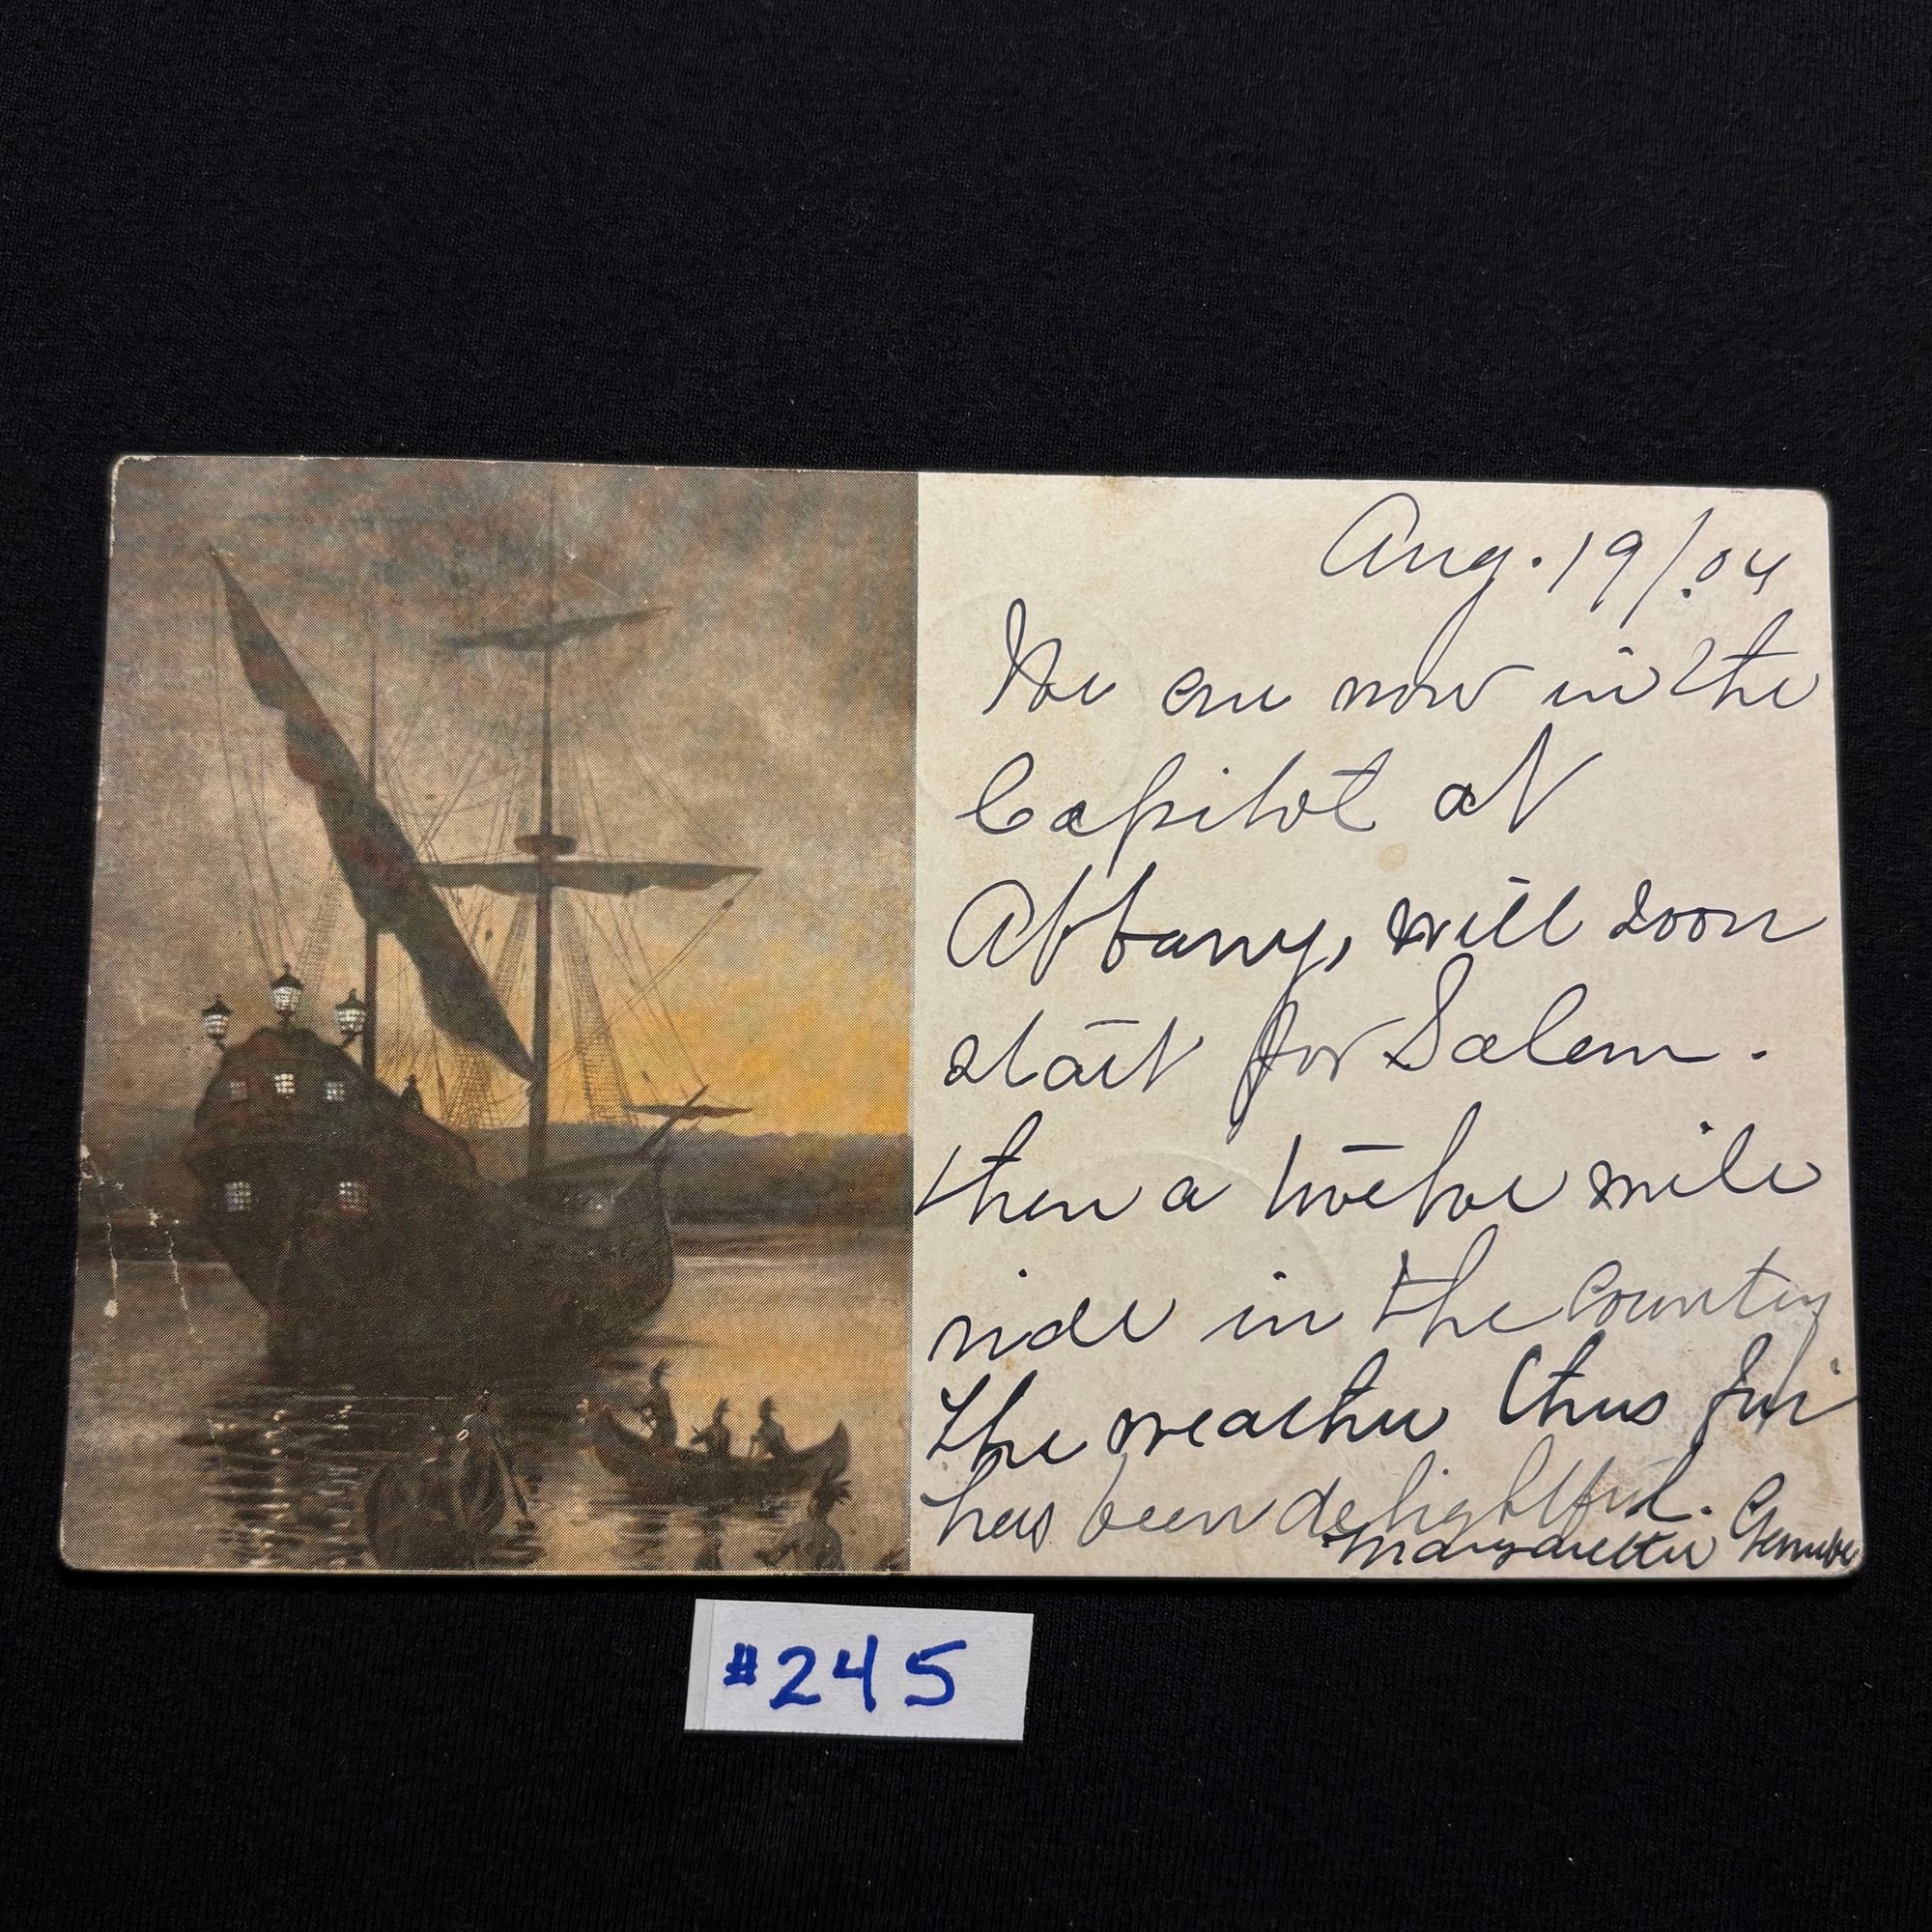 Aug. 19/.04
We are now in the
Capitol at
Albany, will soon
start for Salem.
then a twelve mile
ride in the country
The weather thus far
has been delightful.
#245